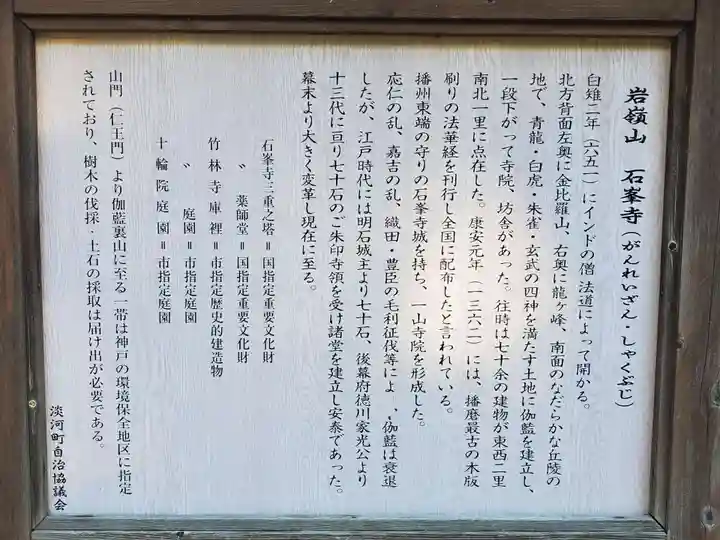 岩嶺山　石峯寺（がんれいざん・しゃくぶじ）
白雉二年（六五一）にインドの僧 法道によって開かる。
北方背面左奥に金比羅山、右奥に龍ヶ峰、南面のなだらかな丘陵の
地で、青龍・白虎・朱雀・玄武の四神を満たす土地に伽藍を建立し、
一段下がって寺院、坊舎があった。往時は七十余の建物が東西二里
南北一里に点在した。康安元年（一三六一）には、播磨最古の木版
刷りの法華経を刊行し全国に配布したと言われている。
播州東端の守りの石峯寺城を持ち、一山寺院を形成した。
応仁の乱、嘉吉の乱、織田・豊臣の毛利征伐等によ　，伽藍は衰退
したが、江戸時代には明石城主より七十石、後幕府徳川家光公より
十三代に亘り七十石のご朱印寺領を受け諸堂を建立し安泰であった。
幕末より大きく変革し現在に至る。
石峯寺三重之塔＝国指定重要文化財
〃　薬師堂＝国指定重要文化財
竹林寺庫裡＝市指定歴史的建造物
〃　庭園＝市指定庭園
十輪院庭園＝市指定庭園
山門（仁王門）より伽藍裏山に至る一帯は神戸の環境保全地区に指定
されており、樹木の伐採・土石の採取は届け出が必要である。
淡河町自治協議会